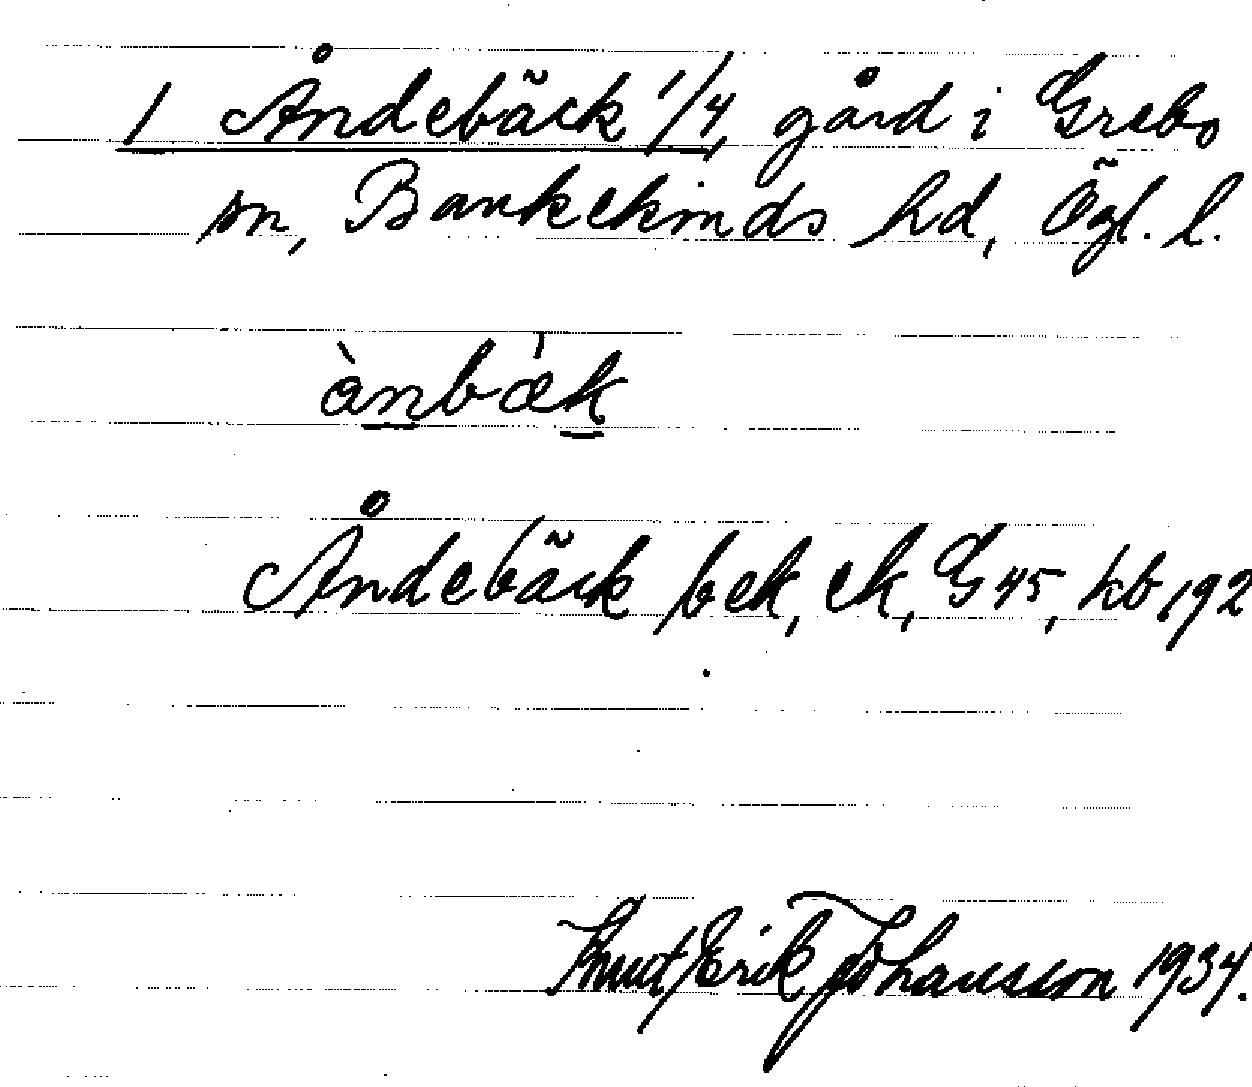 1 Åndebäck 1/4, gård i Grebo
sn, Bankekinds hd, Ögl. l.
ànbæ̀k
Åndebäck bek, ek, G45, kb 192
Knut Erik Johansson 1934.